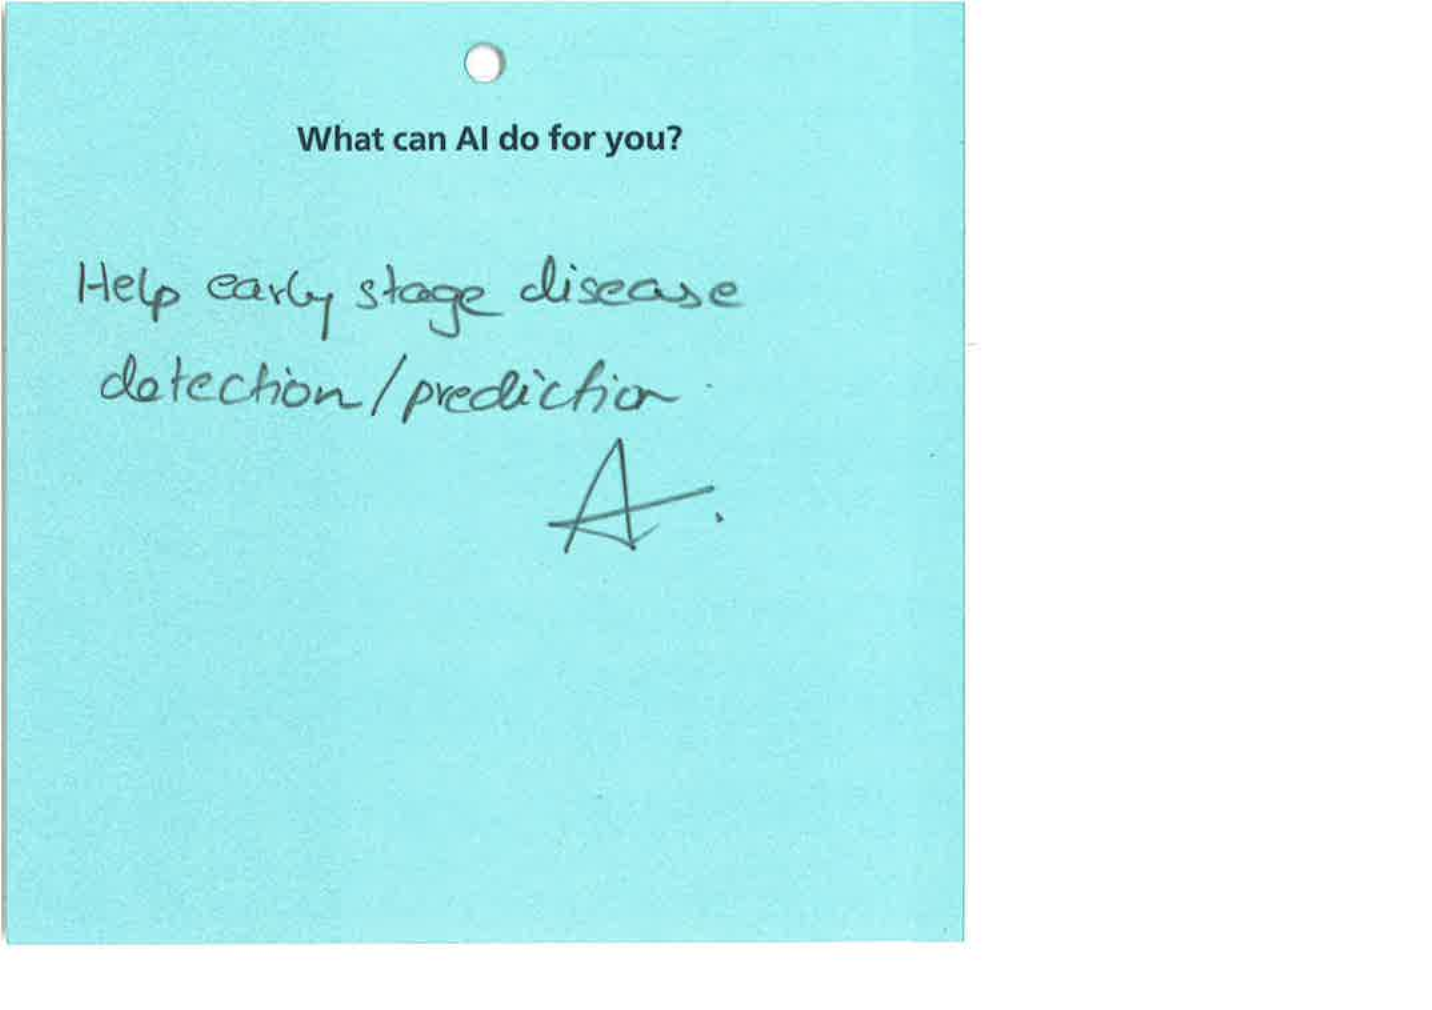 What can AI do for you?
Help early stage disease
detection/prediction.
A.